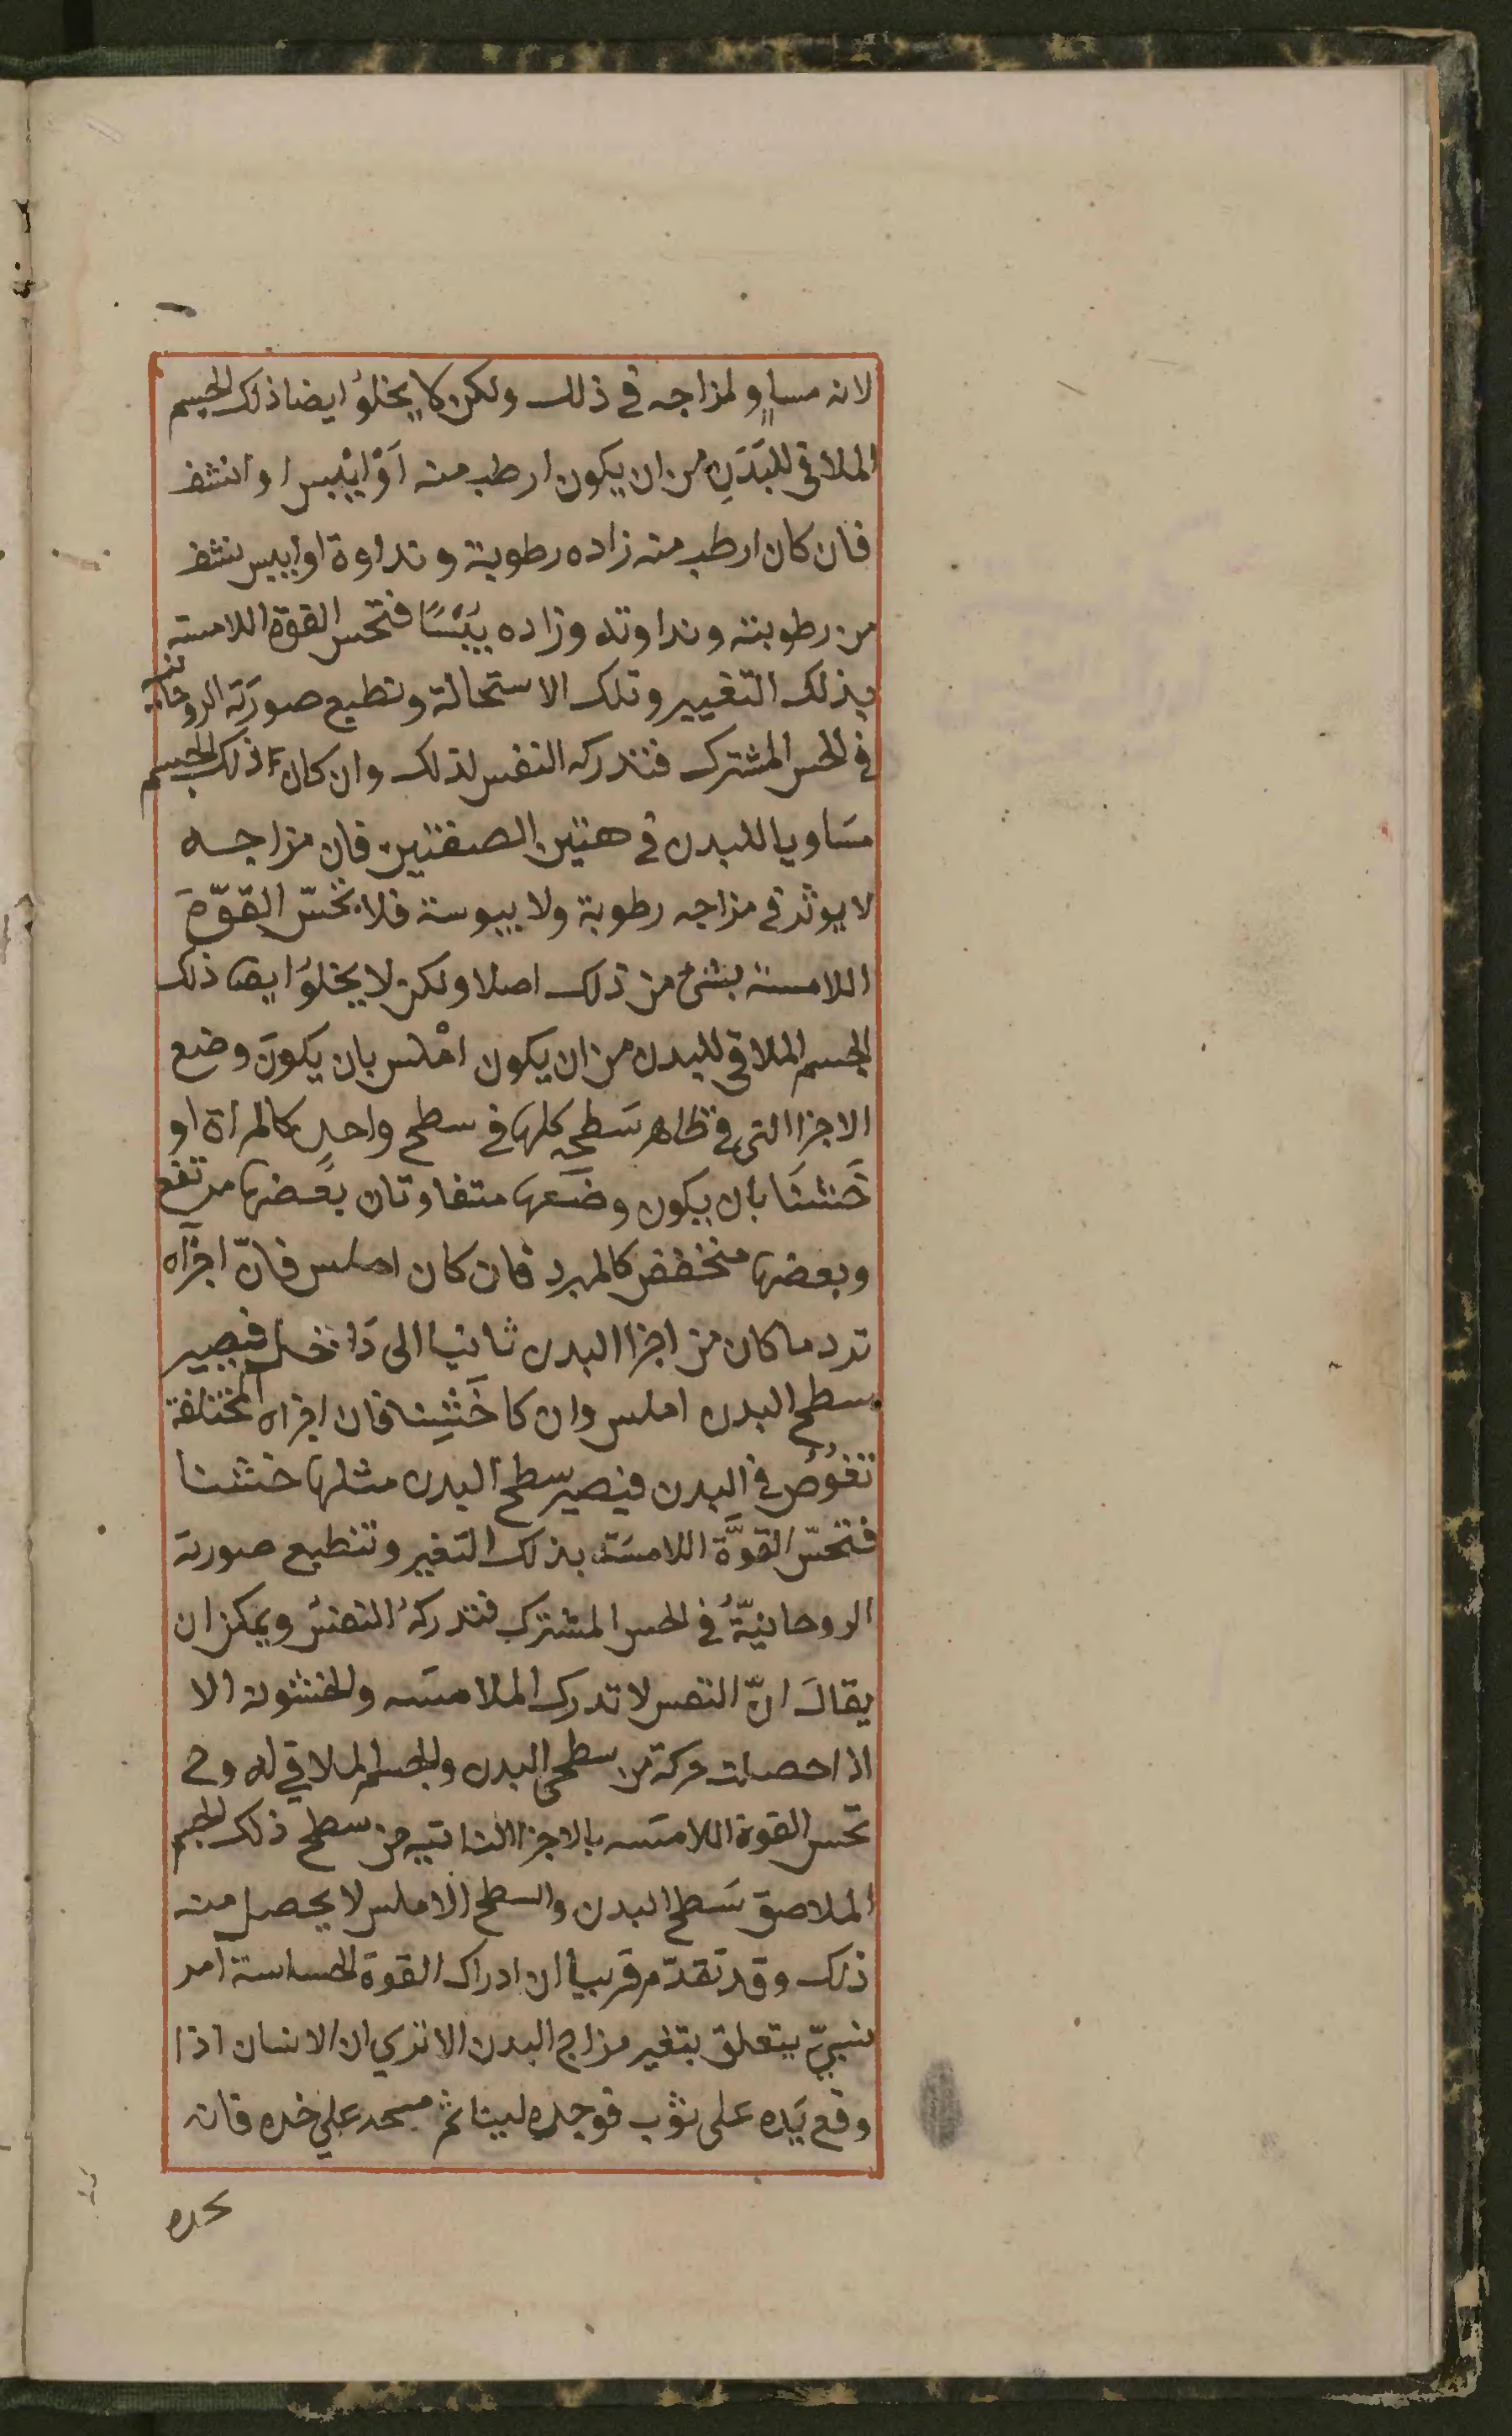 لانه مساوٍ لمزاجه في ذلك ولكن لا يخلوُ ايضا ذلك الجسم
الملاقي للبَدَنِ من ان يكون ارطب منه اَوْ ايْبس او انشف
فان كان ارطب منه زاده رطوبة ونداوة او ايبس نشف
من رطوبته ونداوته وزاده يُبْسًا فتحس القوة اللامسته
بذلك التغيير وتلك الاستحالة وتطبع صورَته الروحانية
في الحس المشترك فتدركه النفس لذلك وان كان ذلك الجسم
مسَاويا للبدن في هتين الصفتين فان مزاجه
لا يوثر في مزاجه رطوبة ولا يبوسة فلا تحسّ القوّة
اللامسة بشئ من ذلك اصلا ولكن لا يخلوُ ايضا ذلك
الجسم الملاقي للبدن من ان يكون امْلس بان يكونَ وضع
الاجزا التي في ظاهر سَطحِه كلها في سطح واحدٍ كالمراة او
خَشنًا بان يكون وضَعها متفاوتان بعَضها مرتفع
وبعضها منخفض كالمبرد فان كان املس فانّ اجزآه
ترد ما كان من اجزا البدن ناتيا الى دَاخل فيصير
سطح البدن املس وان كا خَشِنا فان اجزاه المختلفة
تغوُصُ في البدن فيصير سطح البدن مثلها خشنا
فتحسّ القوَّة اللامسَة بذلك التغير وتنطبع صورته
الروحانيّةُ في الحس المشترك فتدركهُ النفسُ ويمكن ان
يقالَ انّ النفس لا تدرك الملامسَه والخشونه الا
اذا حصلت حركة من سطحي البدن والجسم الملاقي له وح
تحس القوة اللامسَه بالاجزا الناتيه من سطح ذلك الجسم
الملاصق سَطح البدن والسطح الاملس لا يحصل منه
ذلك وقد تقدّم قريبا ان ادراك القوة الحساسة امر
نسبيّ يتعلق بتغير مزاج البدن الا تري ان الانسان اذا
وقع يَده على ثوب فوجده لينا ثم مسحه علي خده فانه